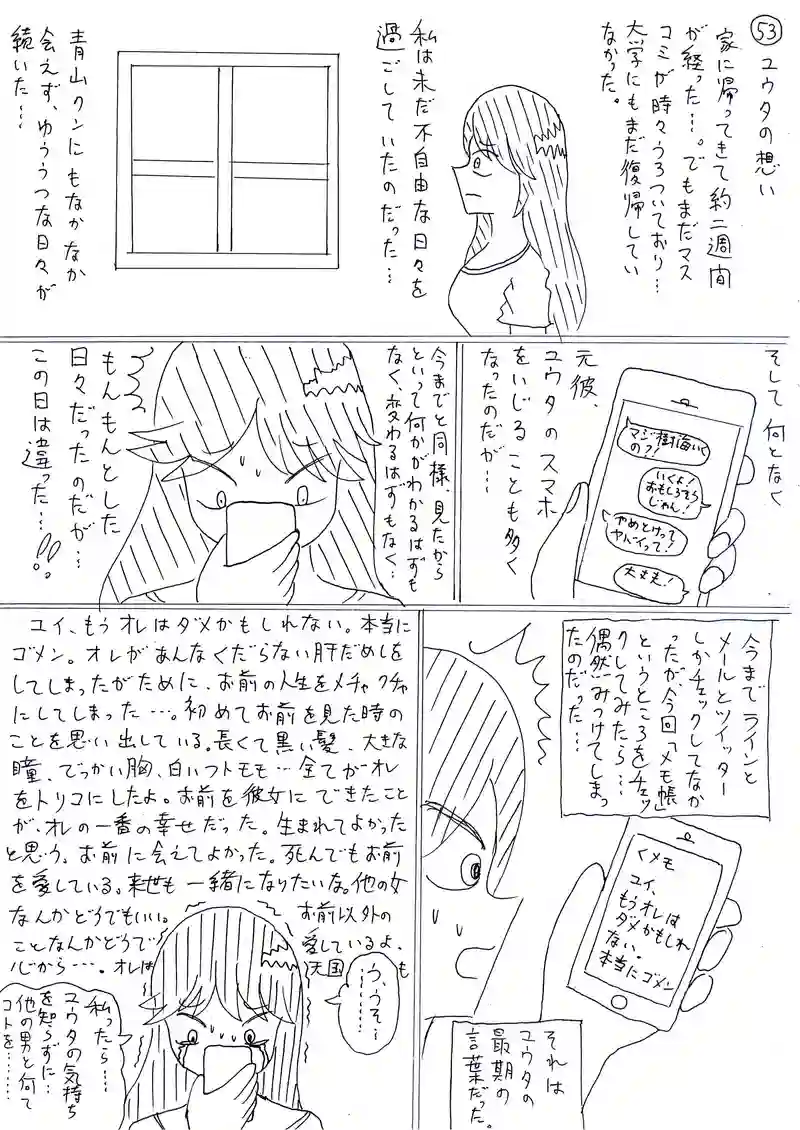 53
ユウタの想い
家に帰ってきて約二週間
が経った…。でもまだマス
コミが時々うろついており…
大学にもまだ復帰してい
なかった。
私は未だ不自由な日々を
過ごしていたのだった…
青山クンにもなかなか
会えず、ゆううつな日々が
続いた…
そして何となく
元彼、
ユウタのスマホ
をいじることも多く
なったのだが…
マジ樹海いく
の?!
いくよ!
おもしろそう
じゃん!
やめとけって
ヤバイって!
大丈夫!
今までと同様、見たから
といって何かがわかるはずも
なく、変わるはずもなく…
もんもんとした
日々だったのだが…
この日は違った…!!
今までラインと
メールとツイッター
しかチェックしてなか
ったが、今回「メモ帳」
というところをチェッ
クしてみたら…
偶然みつけてしまっ
たのだった…
くメモ
ユイ、
もうオレは
ダメかもしれ
ない。
本当にゴメン
それは
ユウタの
最期の
言葉だった。
ユイ、もうオレはダメかもしれない。本当に
ゴメン。オレがあんなくだらない肝だめしを
してしまったがために、お前の人生をメチャクチャ
にしてしまった…。初めてお前を見た時の
ことを思い出している。長くて黒い髪、大きな
瞳、でっかい胸、白いフトモモ…全てがオレ
をトリコにしたよ。お前を彼女にできたこと
が、オレの一番の幸せだった。生まれてよかった
と思う。お前に会えてよかった。死んでもお前
を愛している。来世も一緒になりたいな。他の女
なんかどうでもいい。お前以外の
ことなんかどうで愛しているよ、
心から…。オレは天国も
う、うそ…
………
私ったら…
ユウタの気持ち
を知らずに…
他の男と何て
コトを………